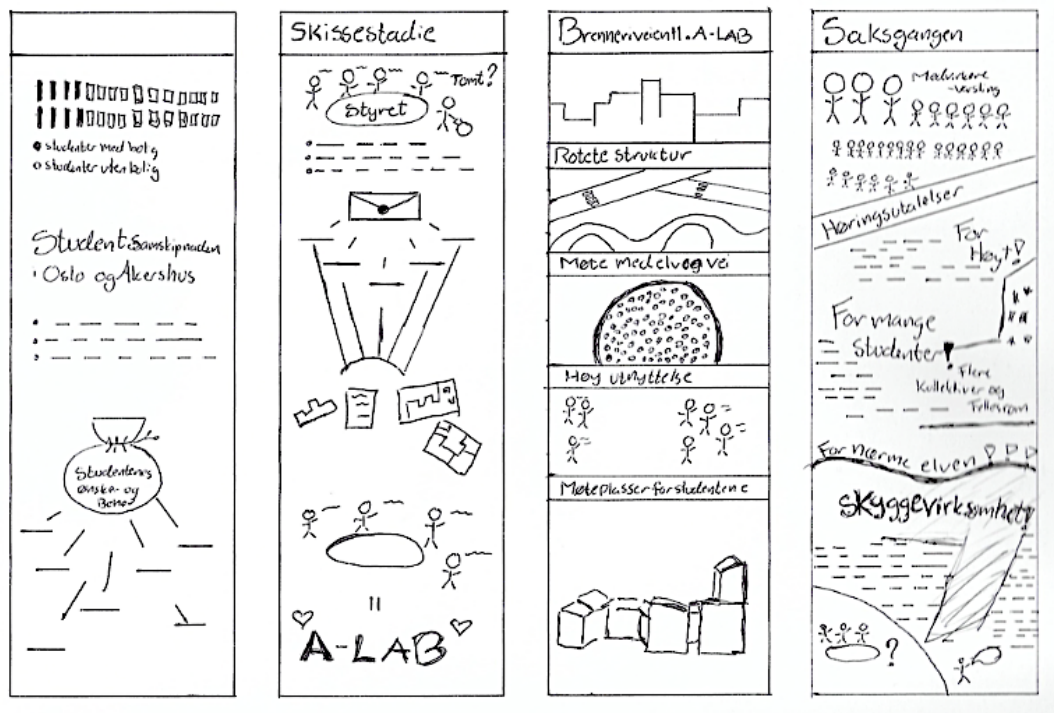 studenter med bolig
studenter uten bolig
Student Samskipnaden
i Oslo og Akershus
Studentenes
Ønske- og
Skissestadie
Tomt?
Styret
A-LAB
Brenneriveien 11. A-LAB
Rotete struktur
Møte med elv og vei
Høy utnyttelse
Møteplasser for studentene
Saksgangen
Høringsutalelser
For
Høyt!
For mange
Studenter!
Flere
Kollektiver og
Fellesrom
For nærme elven !!!
Skyggevirksomhet!
?